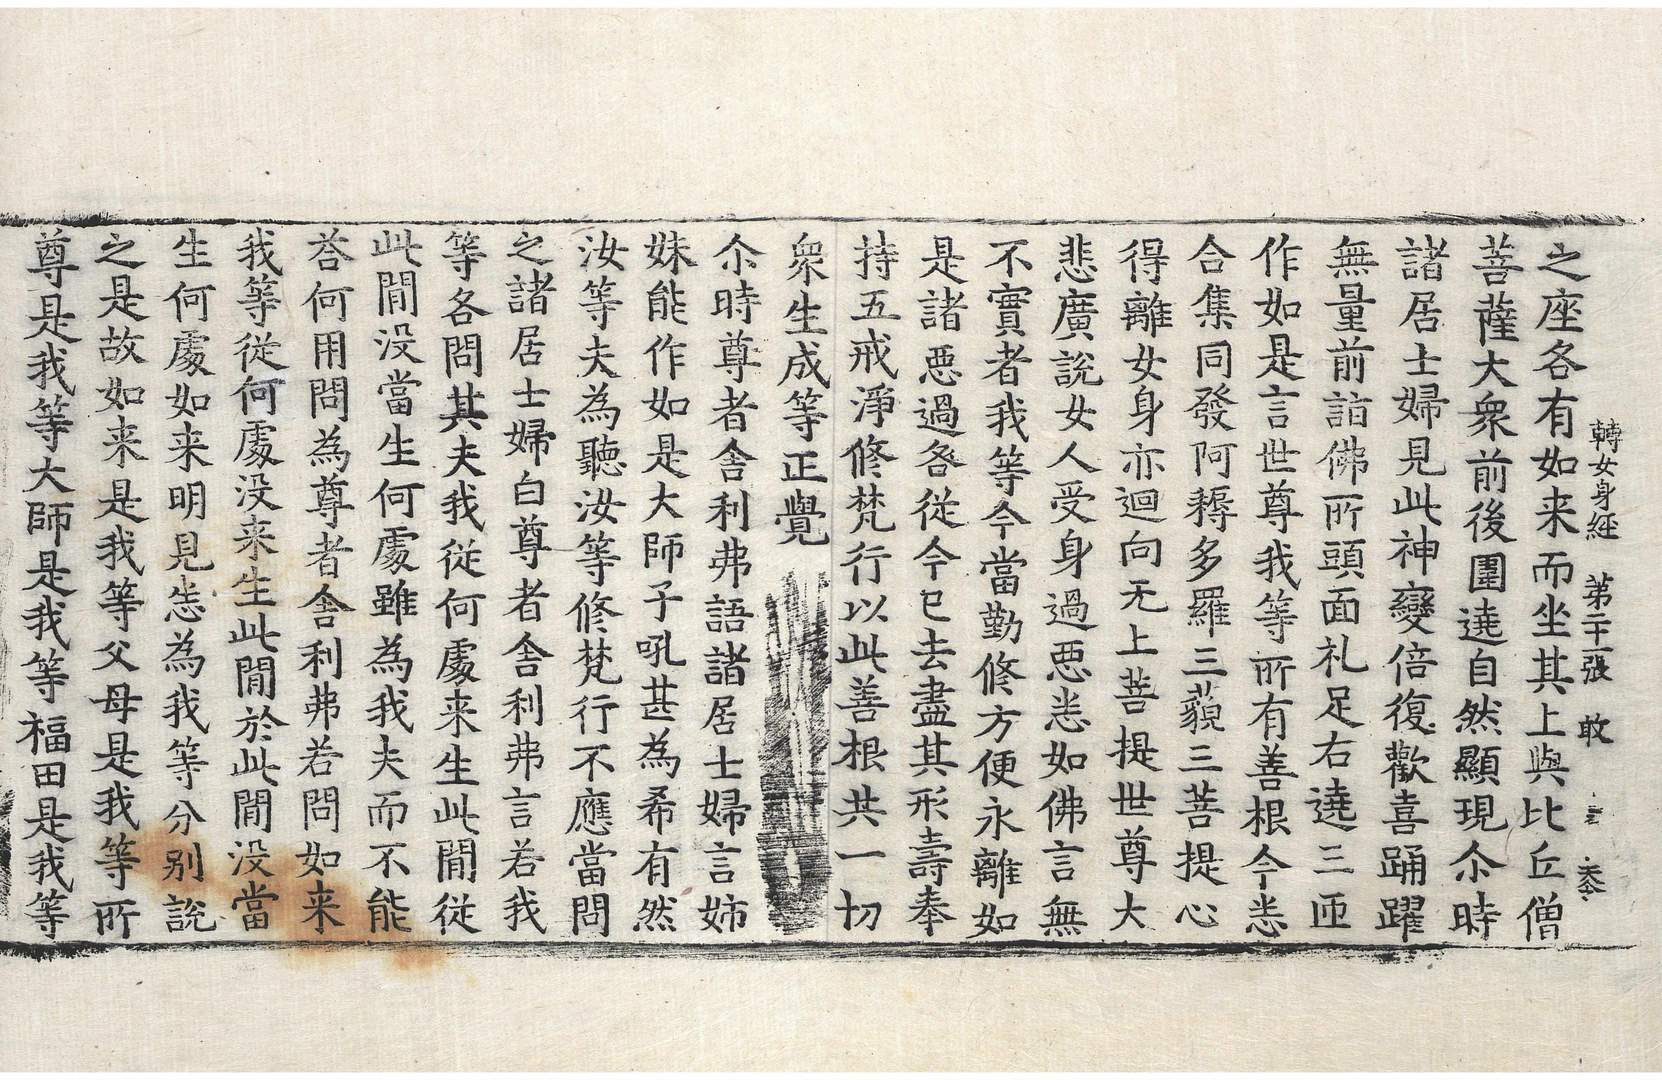 轉女身經　第二十一張　敢
之座各有如来而坐其上與比丘僧
菩薩大衆前後圍遶自然顯現尒時
諸居士婦見此神變倍復歡喜踊躍
無量前詣佛所頭面礼足右遶三匝
作如是言世尊我等所有善根今悉
合集同發阿耨多羅三藐三菩提心
得離女身亦迴向无上菩提世尊大
悲廣說女人受身過惡悉如佛言無
不實者我等今當勤修方便永離如
是諸惡過咎從今已去盡其形壽奉
持五戒淨修梵行以此善根共一切
衆生成等正覺
尒時尊者舍利弗語諸居士婦言姉
妹能作如是大師子吼甚為希有然
汝等夫為聽汝等修梵行不應當問
之諸居士婦白尊者舍利弗言若我
等各問其夫我從何處来生此閒從
此閒没當生何處雖為我夫而不能
荅何用問為尊者舍利弗若問如来
我等從何處没来生此閒於此閒没當
生何處如来明見悉為我等分別說
之是故如来是我等父母是我等所
尊是我等大師是我等福田是我等